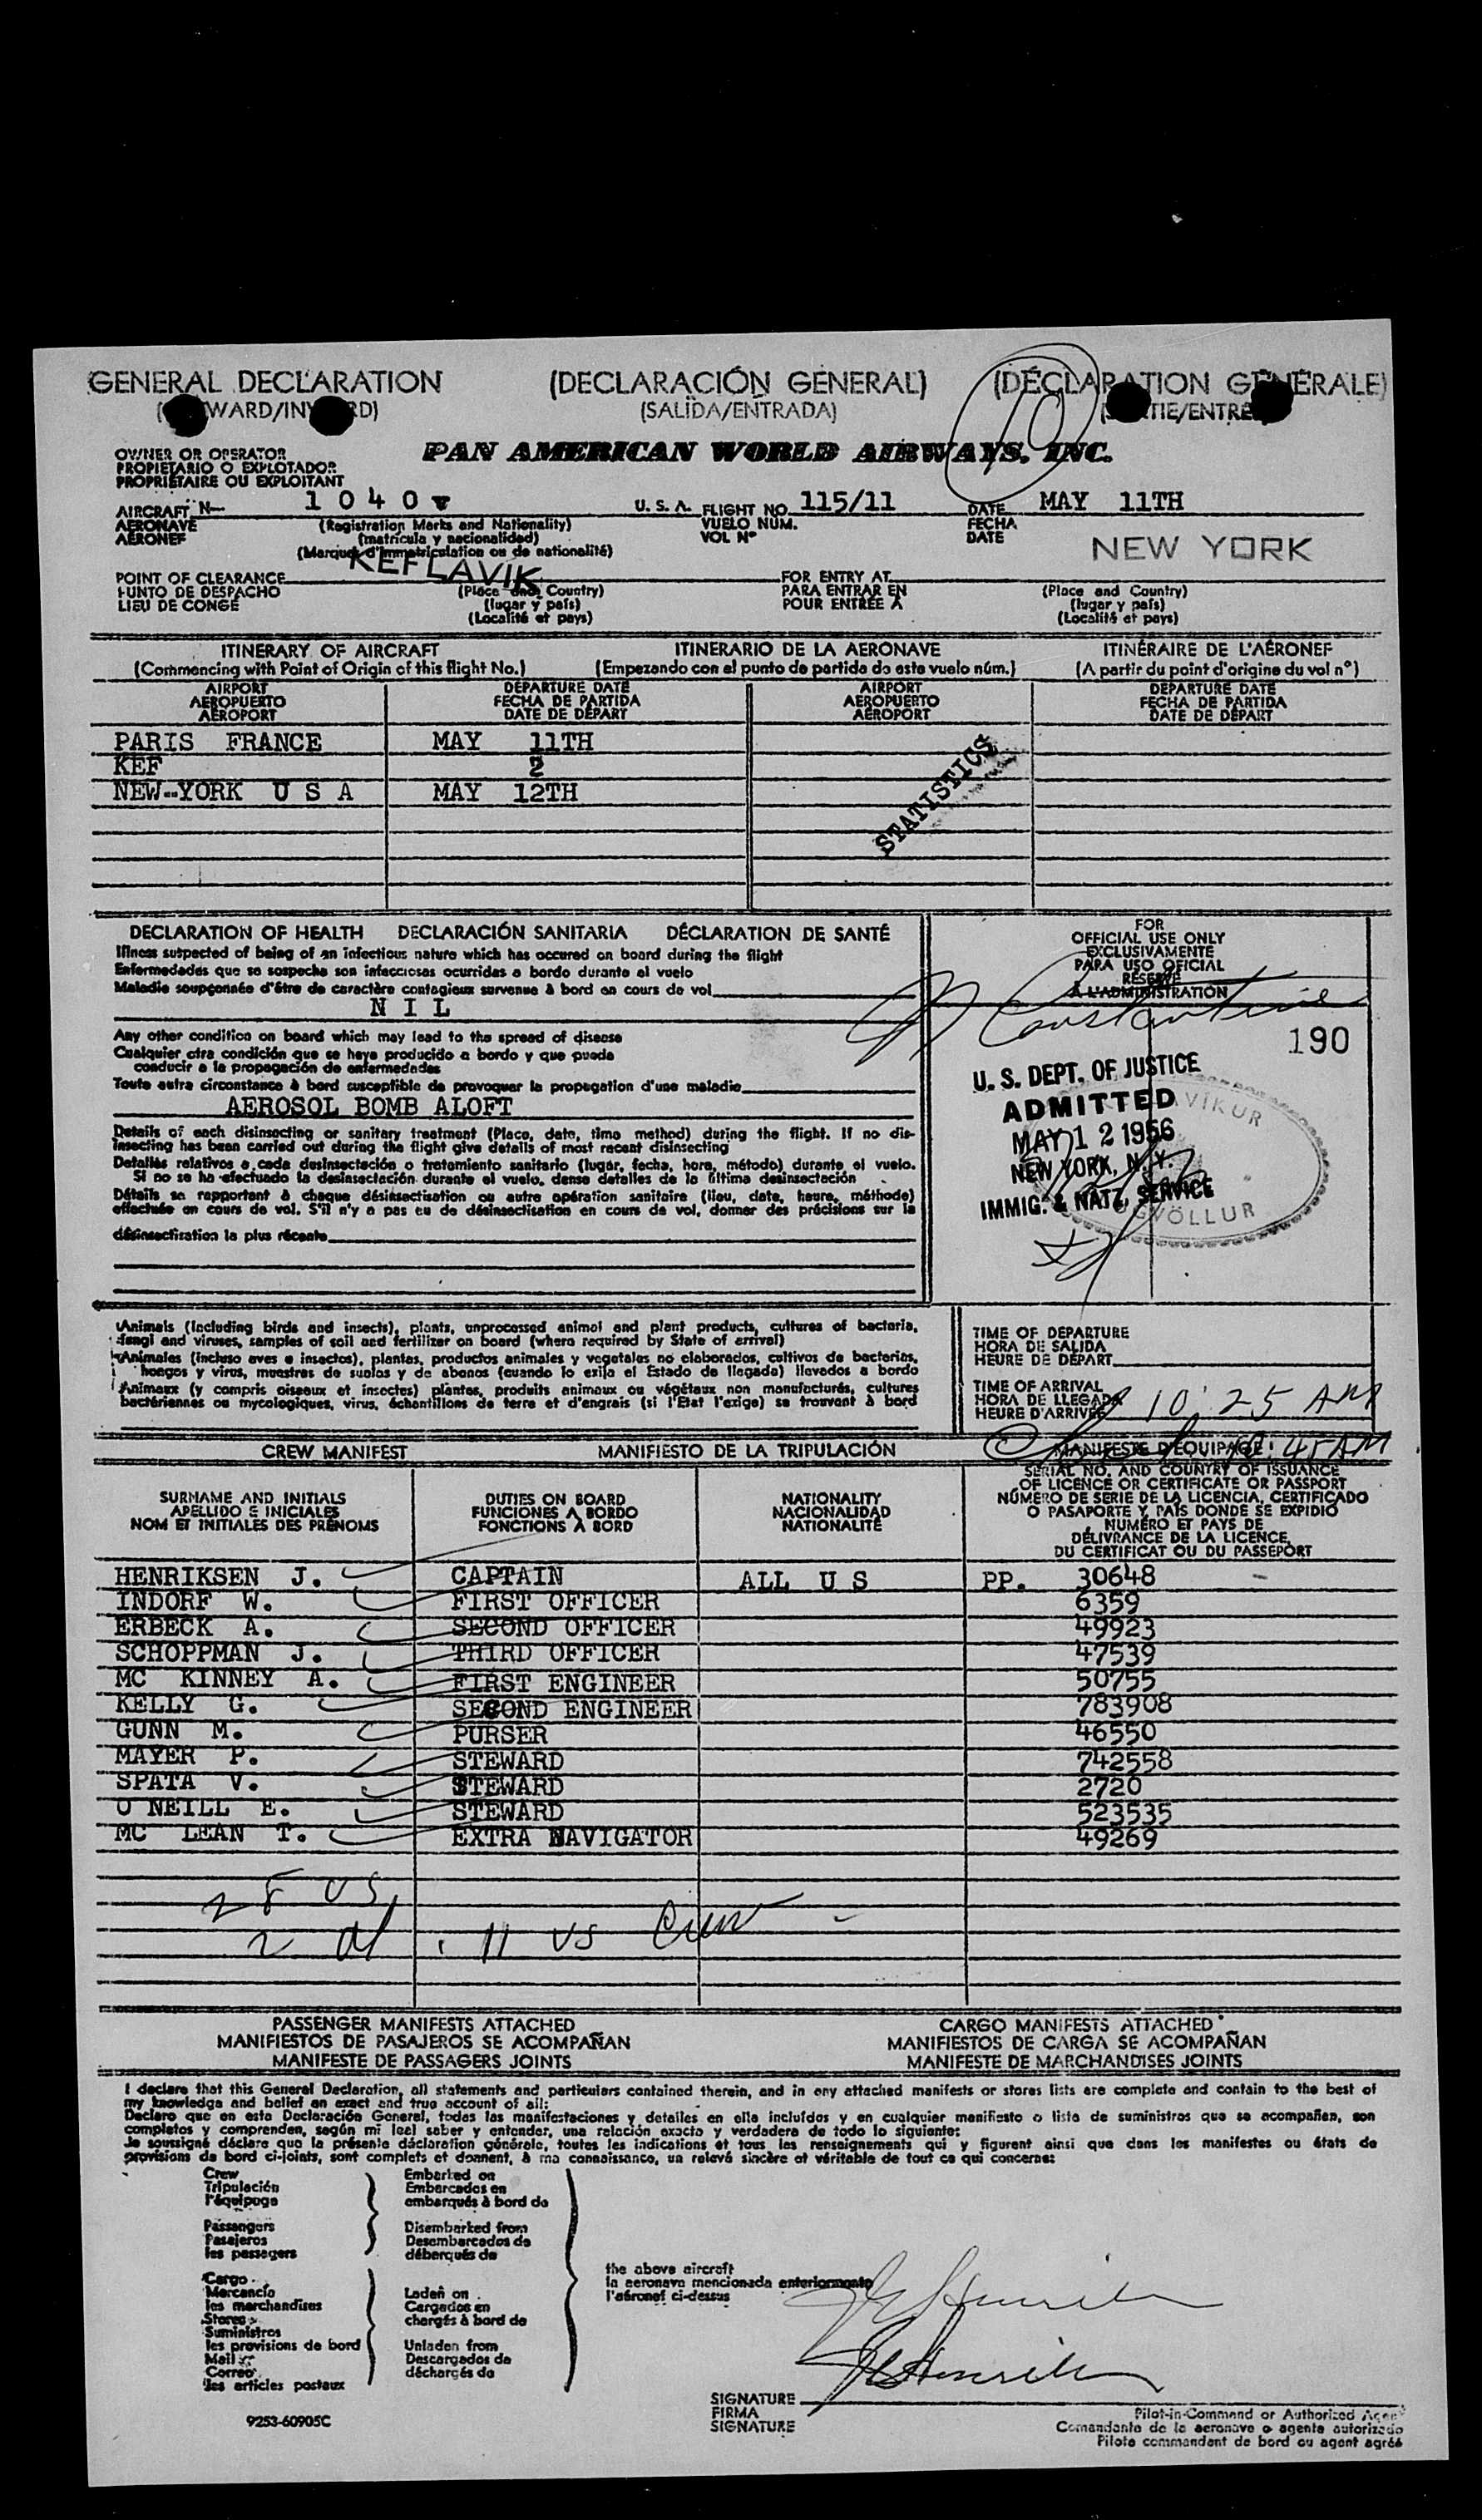 GENERAL DECLARATION (DECLARACIÓN GENERAL) (DÉCLARATION GÉNÉRALE)
(SALÏDA/ENTRADA)
10
OWNER OR OPERATOR PAN AMERICAN WORLD AIRWAYS, INC.
PROPIETARIO O EXPLOTADOR
PROPRIÉTAIRE OU EXPLOITANT
AIRCRAFT N— 1 0 4 0 V U. S. A. FLIGHT NO. 115/11 DATE MAY 11TH
AERONAVE (Registration Marks and Nationality) VUELO NÚM. FECHA
AÉRONEF (matrícula y nacionalidad) VOL Nº DATE
(Marques d'immatriculation ou de nationalité)
KEFLAVIK NEW YORK
POINT OF CLEARANCE FOR ENTRY AT
PUNTO DE DESPACHO (Place and Country) PARA ENTRAR EN (Place and Country)
LIEU DE CONGÉ (lugar y país) POUR ENTRÉE À (lugar y país)
(Localité et pays) (Localité et pays)
ITINERARY OF AIRCRAFT ITINERARIO DE LA AERONAVE ITINÉRAIRE DE L'AÉRONEF
(Commencing with Point of Origin of this flight No.) (Empezando con el punto de partida de este vuelo núm.) (A partir du point d'origine du vol nº)
AIRPORT DEPARTURE DATE AIRPORT DEPARTURE DATE
AEROPUERTO FECHA DE PARTIDA AEROPUERTO FECHA DE PARTIDA
AÉROPORT DATE DE DÉPART AÉROPORT DATE DE DÉPART
PARIS FRANCE MAY 11TH
KEF 2
NEW--YORK U S A MAY 12TH
STATISTICS
DECLARATION OF HEALTH DECLARACIÓN SANITARIA DÉCLARATION DE SANTÉ
Illness suspected of being of an infectious nature which has occured on board during the flight
Enfermedades que se sospecha son infecciosas ocurridas a bordo durante el vuelo
Maladie soupçonnée d'être de caractère contagieux survenue à bord en cours de vol
N I L
Any other condition on board which may lead to the spread of disease
Cualquier otra condición que se haya producido a bordo y que pueda
conducir a la propagación de enfermedades
Toute autre circonstance à bord susceptible de provoquer la propagation d'une maladie
AEROSOL BOMB ALOFT
Details of each disinsecting or sanitary treatment (Place, date, time method) during the flight. If no dis-
insecting has been carried out during the flight give details of most recent disinsecting
Detalles relativos a cada desinsectación o tratamiento sanitario (lugar, fecha, hora, método) durante el vuelo.
Si no se ha efectuado la desinsectación durante el vuelo, dense detalles de la última desinsectación
Détails se rapportant à chaque désinsectisation ou autre opération sanitaire (lieu, date, heure, méthode)
effectuée en cours de vol. S'il n'y a pas eu de désinsectisation en cours de vol, donner des précisions sur la
désinsectisation la plus récente
FOR
OFFICIAL USE ONLY
EXCLUSIVAMENTE
PARA USO OFICIAL
RÉSERVÉ
À L'ADMINISTRATION
Constantine
190
U. S. DEPT. OF JUSTICE
ADMITTED
MAY 12 1956
NEW YORK, N. Y.
IMMIG. & NATZ. SERVICE
Animals (including birds and insects), plants, unprocessed animal and plant products, cultures of bacteria,
fungi and viruses, samples of soil and fertilizer on board (where required by State of arrival)
Animales (incluso aves e insectos), plantas, productos animales y vegetales no elaborados, cultivos de bacterias,
hongos y virus, muestras de suelos y de abonos (cuando lo exija el Estado de llegada) llevados a bordo
Animaux (y compris oiseaux et insectes) plantes, produits animaux ou végétaux non manufacturés, cultures
bactériennes ou mycologiques, virus, échantillons de terre et d'engrais (si l'Etat l'exige) se trouvant à bord
TIME OF DEPARTURE
HORA DE SALIDA
HEURE DE DÉPART
TIME OF ARRIVAL
HORA DE LLEGADA 10:25 AM
HEURE D'ARRIVÉE
CREW MANIFEST MANIFIESTO DE LA TRIPULACIÓN MANIFESTE D'ÉQUIPAGE :45 AM
SURNAME AND INITIALS DUTIES ON BOARD NATIONALITY SERIAL NO. AND COUNTRY OF ISSUANCE
APELLIDO E INICIALES FUNCIONES A BORDO NACIONALIDAD OF LICENCE OR CERTIFICATE OR PASSPORT
NOM ET INITIALES DES PRÉNOMS FONCTIONS À BORD NATIONALITÉ NÚMERO DE SERIE DE LA LICENCIA, CERTIFICADO
O PASAPORTE Y PAÍS DONDE SE EXPIDIÓ
NUMÉRO ET PAYS DE
DÉLIVRANCE DE LA LICENCE,
DU CERTIFICAT OU DU PASSEPORT
HENRIKSEN J. CAPTAIN ALL U S PP. 30648
INDORF W. FIRST OFFICER 6359
ERBECK A. SECOND OFFICER 49923
SCHOPPMAN J. THIRD OFFICER 47539
MC KINNEY A. FIRST ENGINEER 50755
KELLY G. SECOND ENGINEER 783908
GUNN M. PURSER 46550
MAYER P. STEWARD 742558
SPATA V. STEWARD 2720
O NEILL E. STEWARD 523535
MC LEAN T. EXTRA NAVIGATOR 49269
28 US,
2 al 11 US Crew
PASSENGER MANIFESTS ATTACHED CARGO MANIFESTS ATTACHED
MANIFIESTOS DE PASAJEROS SE ACOMPAÑAN MANIFIESTOS DE CARGA SE ACOMPAÑAN
MANIFESTE DE PASSAGERS JOINTS MANIFESTE DE MARCHANDISES JOINTS
I declare that this General Declaration, all statements and particulars contained therein, and in any attached manifests or stores lists are complete and contain to the best of
my knowledge and belief an exact and true account of all:
Declaro que en esta Declaración General, todas las manifestaciones y detalles en ella incluídos y en cualquier manifiesto o lista de suministros que se acompañan, son
completos y comprenden, según mi leal saber y entender, una relación exacta y verdadera de todo lo siguiente:
Je soussigné déclare que la présente déclaration générale, toutes les indications et tous les renseignements qui y figurent ainsi que dans les manifestes ou états de
provisions de bord ci-joints, sont complets et donnent, à ma connaissance, un relevé sincère et véritable de tout ce qui concerne:
Crew Embarked on
Tripulación Embarcados en
l'équipage embarqués à bord de
Passengers Disembarked from
Pasajeros Desembarcados de
les passagers débarqués de
the above aircraft
la aeronave mencionada anteriormente
l'aéronef ci-dessus
Cargo
Mercancía Laden on
les marchandises Cargados en
Stores chargés à bord de
Suministros
les provisions de bord Unladen from
Mail Descargados de
Correo déchargés de
les articles postaux
SIGNATURE
FIRMA
SIGNATURE
Pilot-in-Command or Authorized Agent
Comandante de la aeronave o agente autorizado
Pilote commandant de bord ou agent agréé
9253-60905C